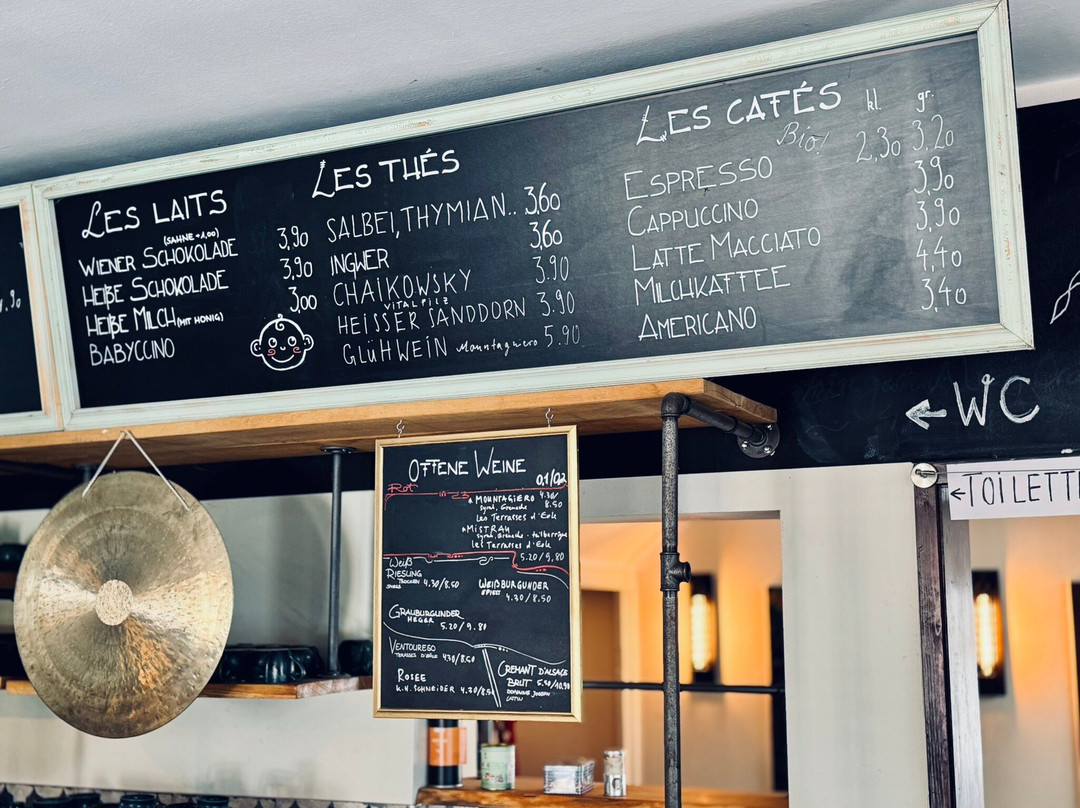 LES LAITS
(SAHNE +1,00)
WIENER SCHOKOLADE 3,90
HEIßE SCHOKOLADE 3,90
HEIßE MILCH (MIT HONIG) 3,00
BABYCCINO
LES THÉS
SALBEI, THYMIAN.. 3,60
INGWER 3,60
CHAIKOWSKY 3.90
VITALPILZ
HEISSER SANDDORN 3.90
GLÜHWEIN Mountagiero 5.90
LES CAFÉS kl. gr.
Bio!
ESPRESSO 2,30 3,20
CAPPUCCINO 3,90
LATTE MACCIATO 3,90
MILCHKAFFEE 4,40
AMERICANO 3,40
← WC
←TOILETTE
OFFENE WEINE
0,1/0,2
Rot
MOUNTAGIERO 4.30/
Syrah, Grenache 8.50
Les Terrasses d'Eole
MISTRAU
Syrah, Grenache
Les Terrasses d'Eole
5.20/9.80
Weiß
RIESLING
TROCKEN
SPIESS
4.30/8.50
WEIßBURGUNDER
SPIESS
4.30/8.50
GRAUBURGUNDER
HEGER
5.20/9.80
VENTOURESO
TERRASSES D'EOLE 4.30/8.50
ROSEE
K.H. SCHNEIDER 4.30/8.50
CREMANT D'ALSACE
BRUT 5.90/10.90
DOMAINE JOSEPH
CATTIN